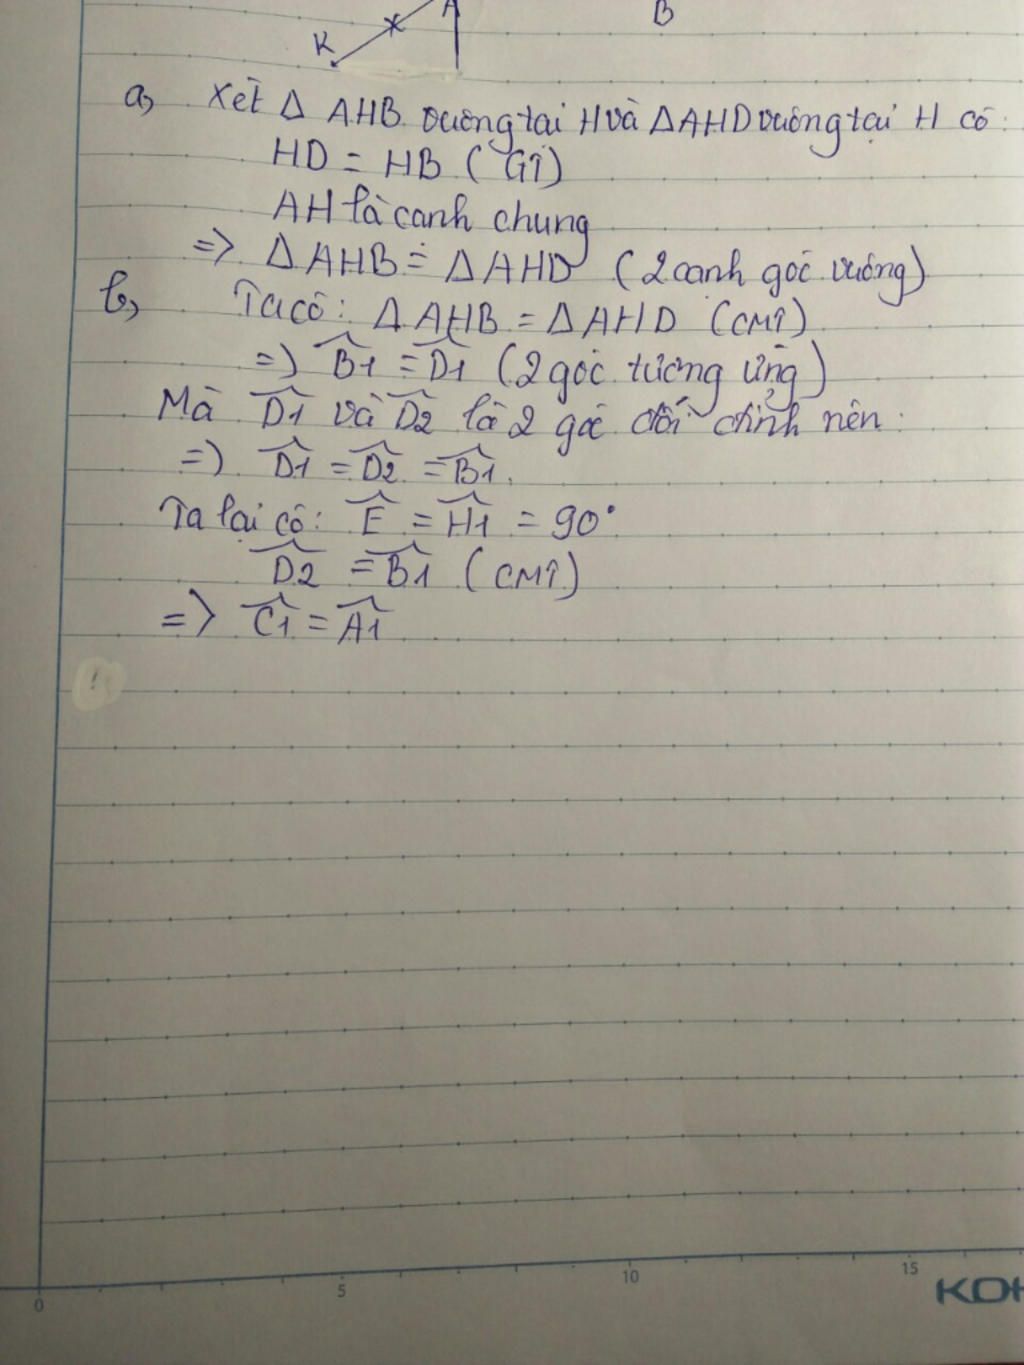 K A B
a, Xét Δ AHB vuông tại H và Δ AHD vuông tại H có:
HD = HB ( GT)
AH là cạnh chung
=> Δ AHB = Δ AHD (2 cạnh góc vuông)
b, Ta có: Δ AHB = Δ AHD (CMT)
=> B̂1 = D̂1 (2 góc tương ứng)
Mà D̂1 và D̂2 là 2 góc đối đỉnh nên:
=> D̂1 = D̂2 = B̂1.
Ta lại có: Ê = Ĥ1 = 90°
D̂2 = B̂1 (CMT)
=> Ĉ1 = Â1
0 5 10 15 KOK